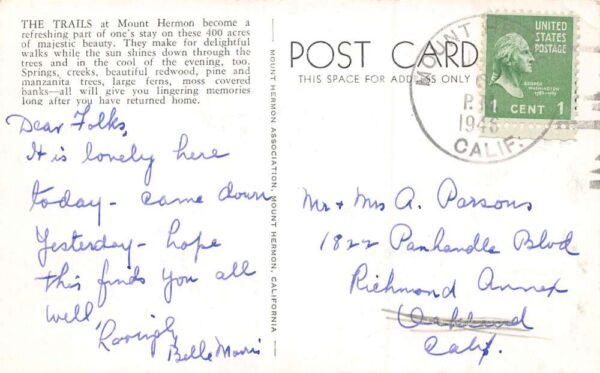 THE TRAILS at Mount Hermon become a
refreshing part of one's stay on these 400 acres
of majestic beauty. They make for delightful
walks while the sun shines down through the
trees and in the cool of the evening, too.
Springs, creeks, beautiful redwood, pine and
manzanita trees, large ferns, moss covered
banks—all will give you lingering memories
long after you have returned home.
Dear Folks,
It is lovely here
today - came down
yesterday - hope
this finds you all
well,
Lovingly
Belle Morris
MOUNT HERMON ASSOCIATION, MOUNT HERMON, CALIFORNIA
POST CARD
THIS SPACE FOR ADDRESS ONLY
MOUNT
P.M
1946
CALIF.
UNITED
STATES
POSTAGE
GEORGE
WASHINGTON
1 CENT 1
Mr + Mrs A. Parsons
1822 Panhandle Blvd
Richmond Annex
Oakland
Calif.